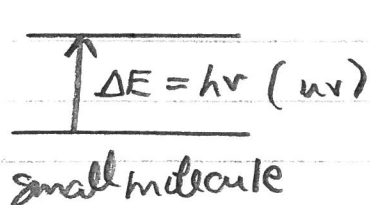 ΔE = hν (uv)
small molecule